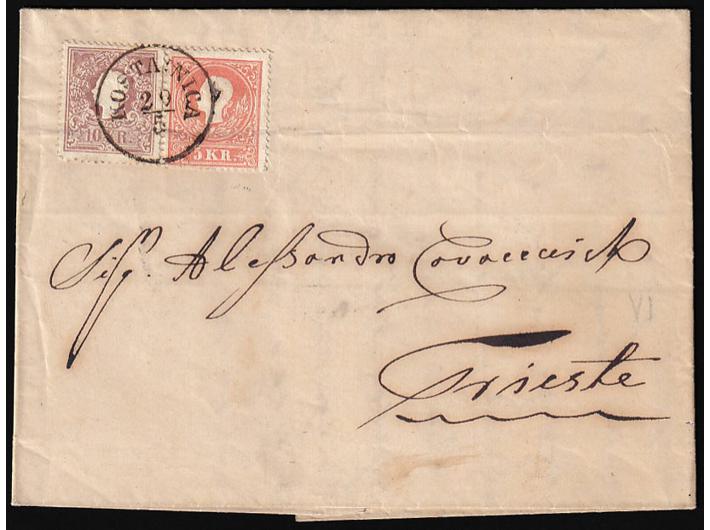 KOSTAJNICA
20
/5
10 KR.
5 KR.
Sigr. Alessandro Covacevich
Trieste
VI